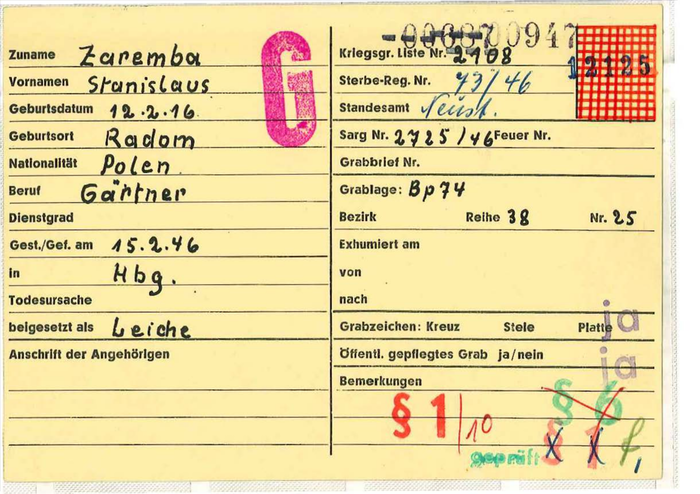 Zuname Zaremba
Vornamen Stanislaus
Geburtsdatum 12.2.16.
Geburtsort Radom
Nationalität Polen
Beruf Gärtner
Dienstgrad
Gest./Gef. am 15.2.46
in Hbg.
Todesursache
beigesetzt als Leiche
Anschrift der Angehörigen
G
00947
Kriegsgr. Liste Nr. 2108
12125
Sterbe-Reg. Nr. 43/46
Standesamt Neust.
Sarg Nr. 2725/46 Feuer Nr.
Grabbrief Nr.
Grablage: Bp74
Bezirk Reihe 38 Nr. 25
Exhumiert am
von
nach
ja
Grabzeichen: Kreuz Stele Platte
Öffentl. gepflegtes Grab ja/nein
ja
Bemerkungen
§ 1/10
§ 6
geprüft
§ 1